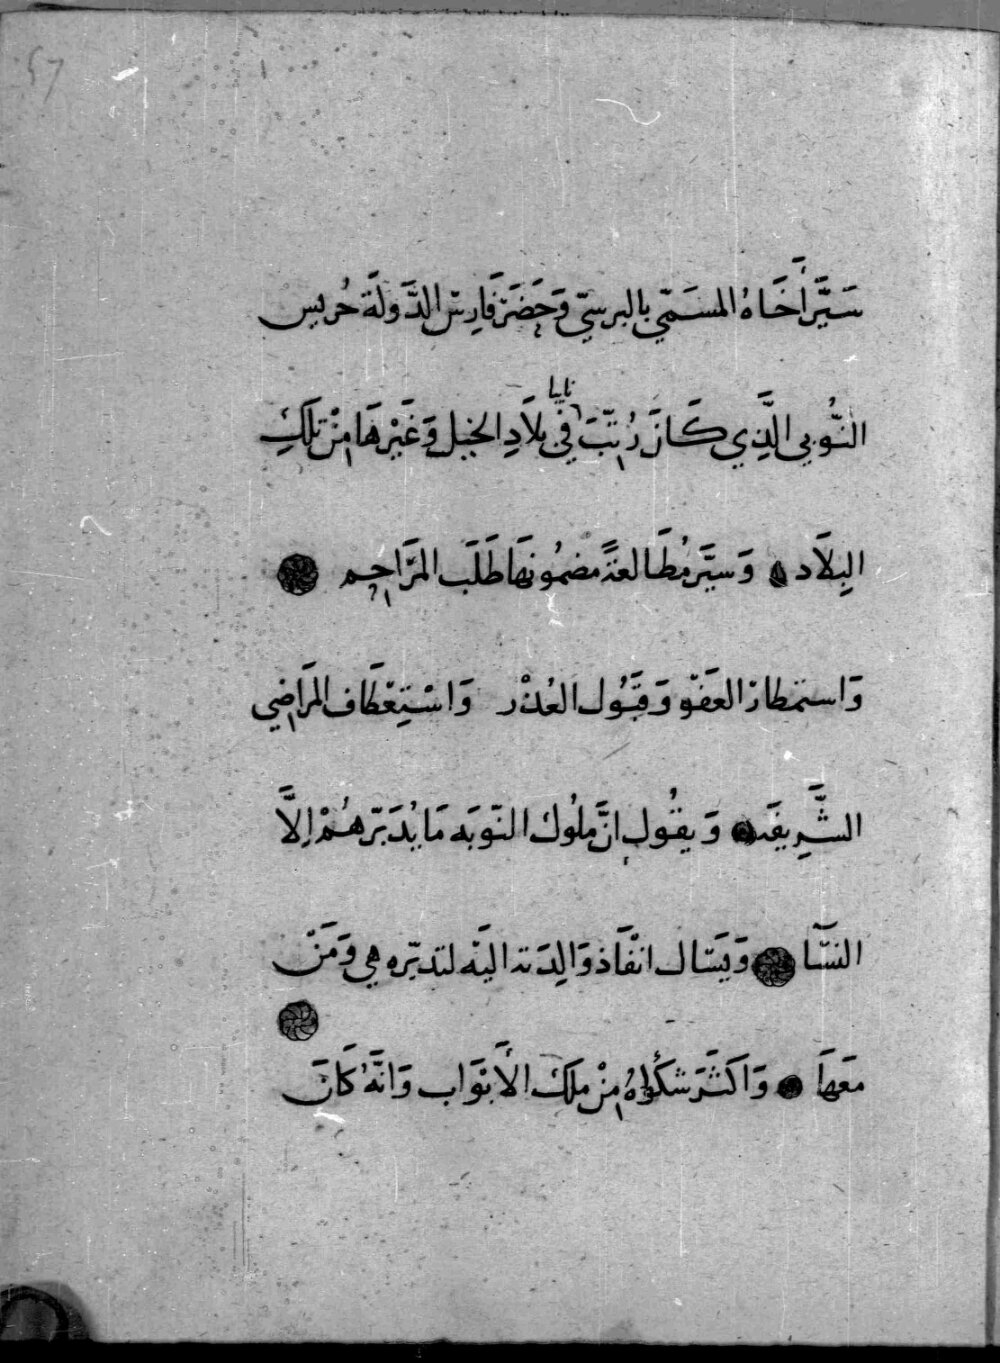 سَيَّرَ أَخَاهُ المسَمّي بالبرسيّ وَحَضَرَ فَارِسّ الدَّولَة حُريس
النُّوبي الَّذِي كَانَ رُتّبَ نايبا فِي بلاَدِ الجبل وَغَيْرهَا مِنْ تلكَ
البِلاَد وَسيَّر مُطَالعةً مضمُونهَا طَلَب المَرَاحِم
وَاستمطار العَفْو وَقبُول العُذْر وَاسْتِعْطَاف المرَاضِي
الشَّرِيفَه وَيقُول انَّ ملُوك النّوبَه مَا يُدَبّرهُمْ إلَّا
النسَّآ وَيَسّال انْفَاذ وَالِدَته اليْه لتدبّره هي وَمَنْ
معَهَا وَاَكثَر شكْوَاهُ مِنْ ملك الأَبْوَاب وَانَّهُ كَانَ